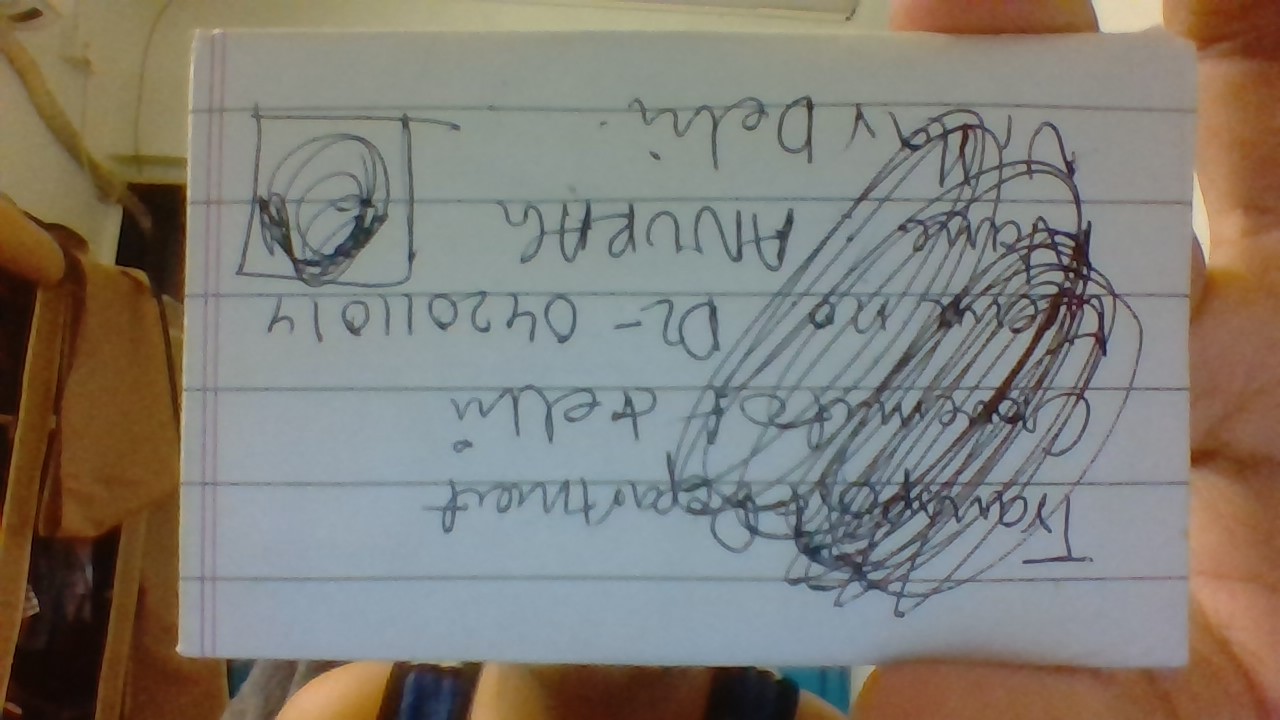 Transport Department
Government Delhi
no DL- 042011014
Name ANURAG
Delhi